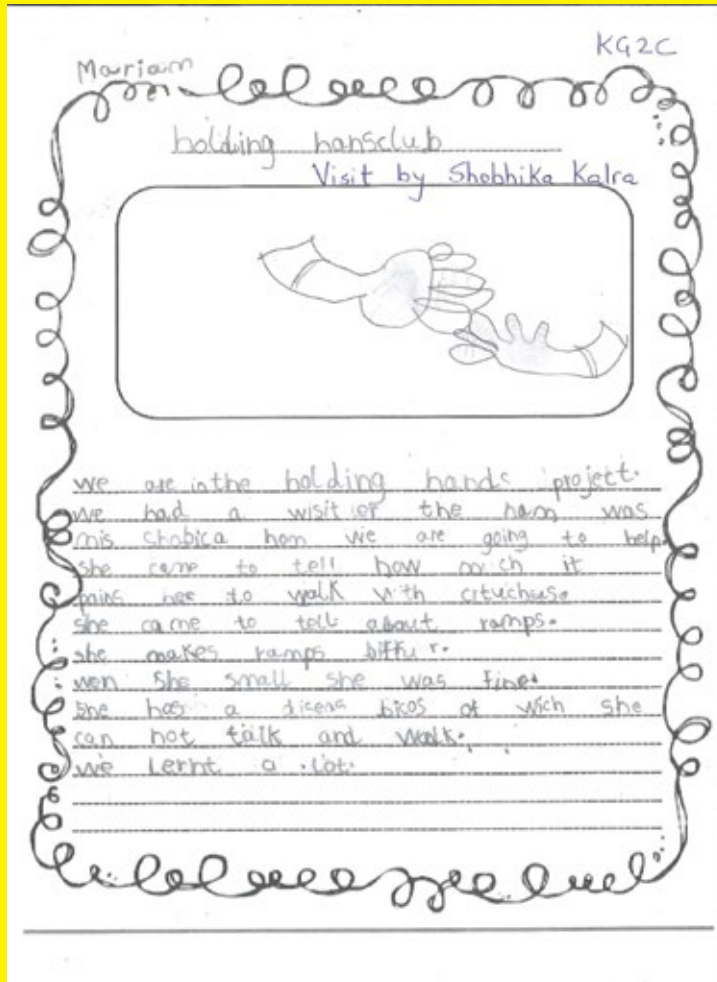 KG2C
Mariam
holding hansclub
Visit by Shobhika Kalra
we are in the holding hands project.
We had a wisit er the nam was
mis shobica hom we are going to help.
she came to tell how much it
pains her to walk with crtuchus.
she came to tell about ramps.
she makes ramps
wen she small she was fine.
she has a diseas bicos of wich she
can not talk and walk.
we lernt a lot.